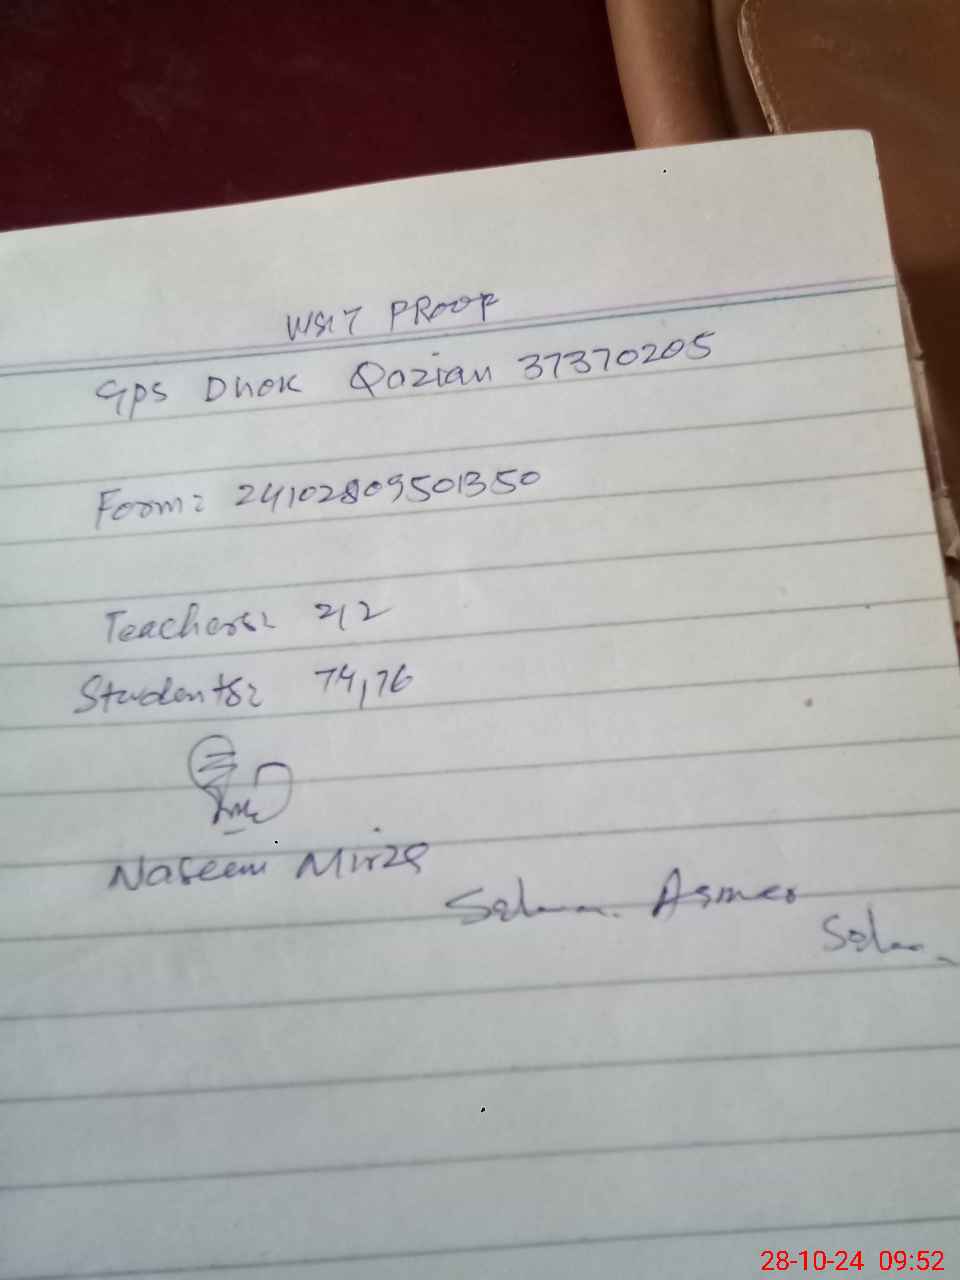 VISIT PROOF
GPS Dhok Qazian 37370205
Form: 24102809501350
Teachers: 2,2
Students: 74,76
Naseem Mirza
Salman
28-10-24 09:52